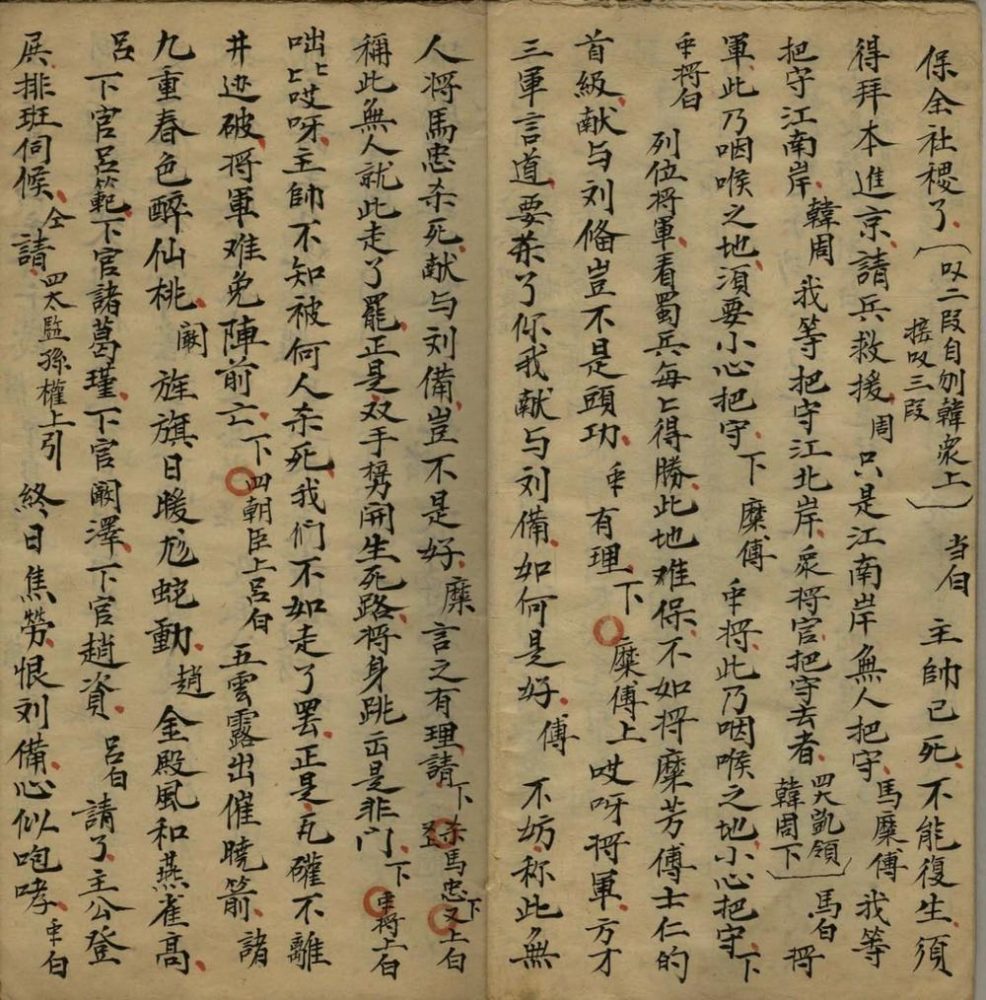 保全社稷了（叹二段自刎韓衆上接叹三段）当白　主帥已死不能復生須
得拜本進京請兵救援周　只是江南岸無人把守馬糜傅　我等
把守江南岸韓周　我等把守江北岸衆将官把守去者四大凱領韓周下　馬白　将
軍此乃咽喉之地須要小心把守下　糜傅　众将此乃咽喉之地小心把守下
众将白　列位将軍看蜀兵每匕得勝此地难保不如将糜芳傅士仁的
首級献与刘俻豈不是頭功众　有理下　糜傅上　哎呀将軍方才
三軍言道要杀了你我献与刘備如何是好傅　不妨称此無
人将馬忠杀死献与刘備豈不是好糜　言之有理請下　杀馬忠下　又上白
稱此無人就此走了罷正是双手擘開生死路将身跳出是非门下　众将上白
咄匕哎呀主帥不知被何人杀死我们不如走了罢正是瓦確不離
井边破将軍难免陣前亡下　四朝臣上吕白　五雲露出催曉箭諸
九重春色醉仙桃闞　旌旗日暖尨蛇動趙　金殿風和燕雀高
吕　下官吕範下官諸葛瑾下官闞澤下官趙資吕白　請了主公登
展排班伺候仝　請四太監孫權上引　終日焦勞恨刘備心似咆哮众白